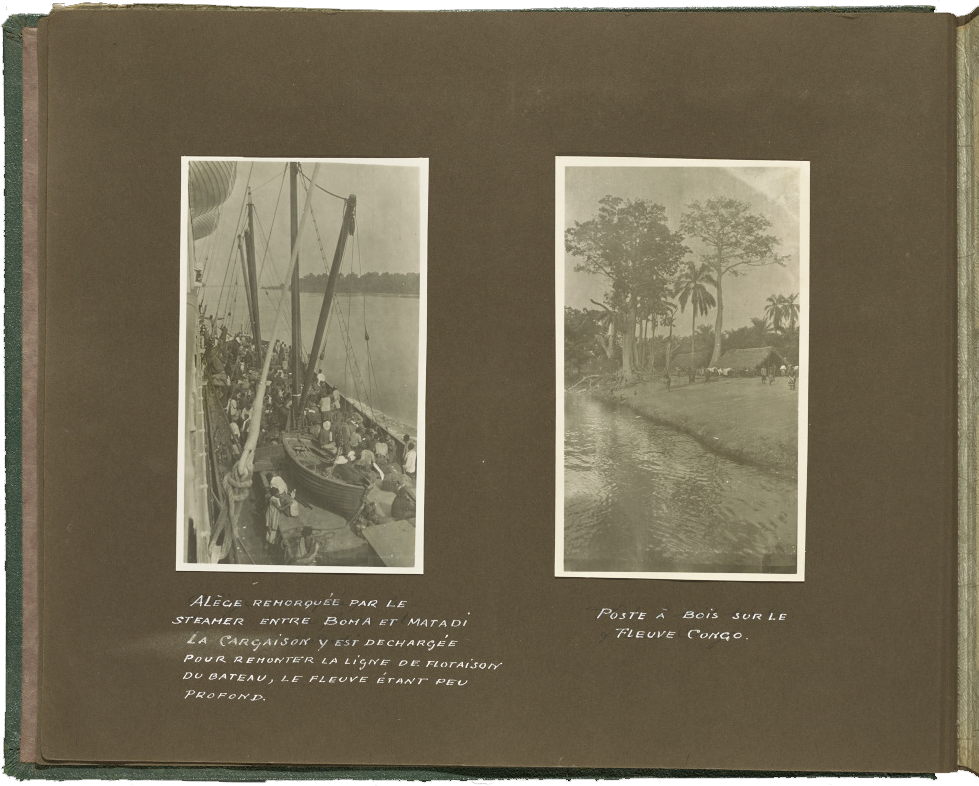 ALÈGE REMORQUÉE PAR LE
STEAMER ENTRE BOMA ET MATADI
LA CARGAISON Y EST DECHARGÉE
POUR REMONTER LA LIGNE DE FLOTAISON
DU BATEAU, LE FLEUVE ÉTANT PEU
PROFOND.
POSTE À BOIS SUR LE
FLEUVE CONGO.